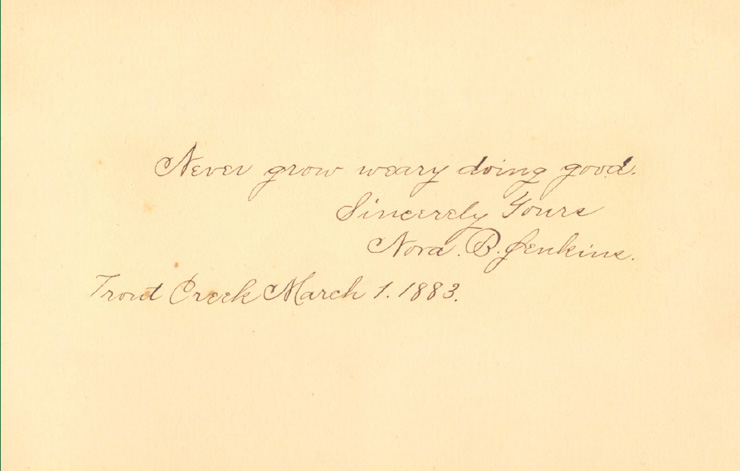 Never grow weary doing good.
Sincerely Yours
Nora. B. Jenkins.
Trout Creek March 1. 1883.